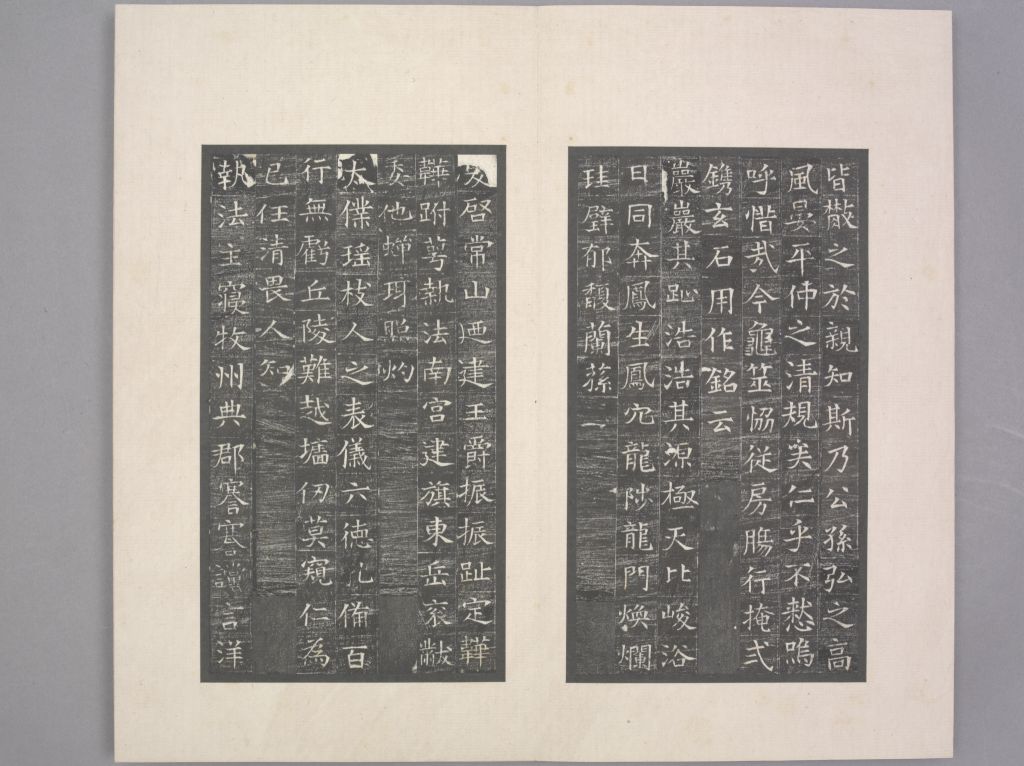 皆散之於親知斯乃公孫弘之高
風晏平仲之清規矣仁乎不憖嗚
呼惜哉今龜筮恊従房膓行掩式
鐫玄石用作銘云
巖巖其趾浩浩其源極天比峻浴
日同奔鳳生鳳穴龍陟龍門煥爛
珪璧郁馥蘭蓀一
啓常山迺建王爵振振趾定韡
韡跗萼執法南宮建旗東岳袞黻
委他蟬珥照灼
太僕瑤枝人之表儀六德孔備百
行無虧丘陵難越墻仞莫窺仁為
已任清畏人知
執法主寢牧州典郡謇謇讜言洋